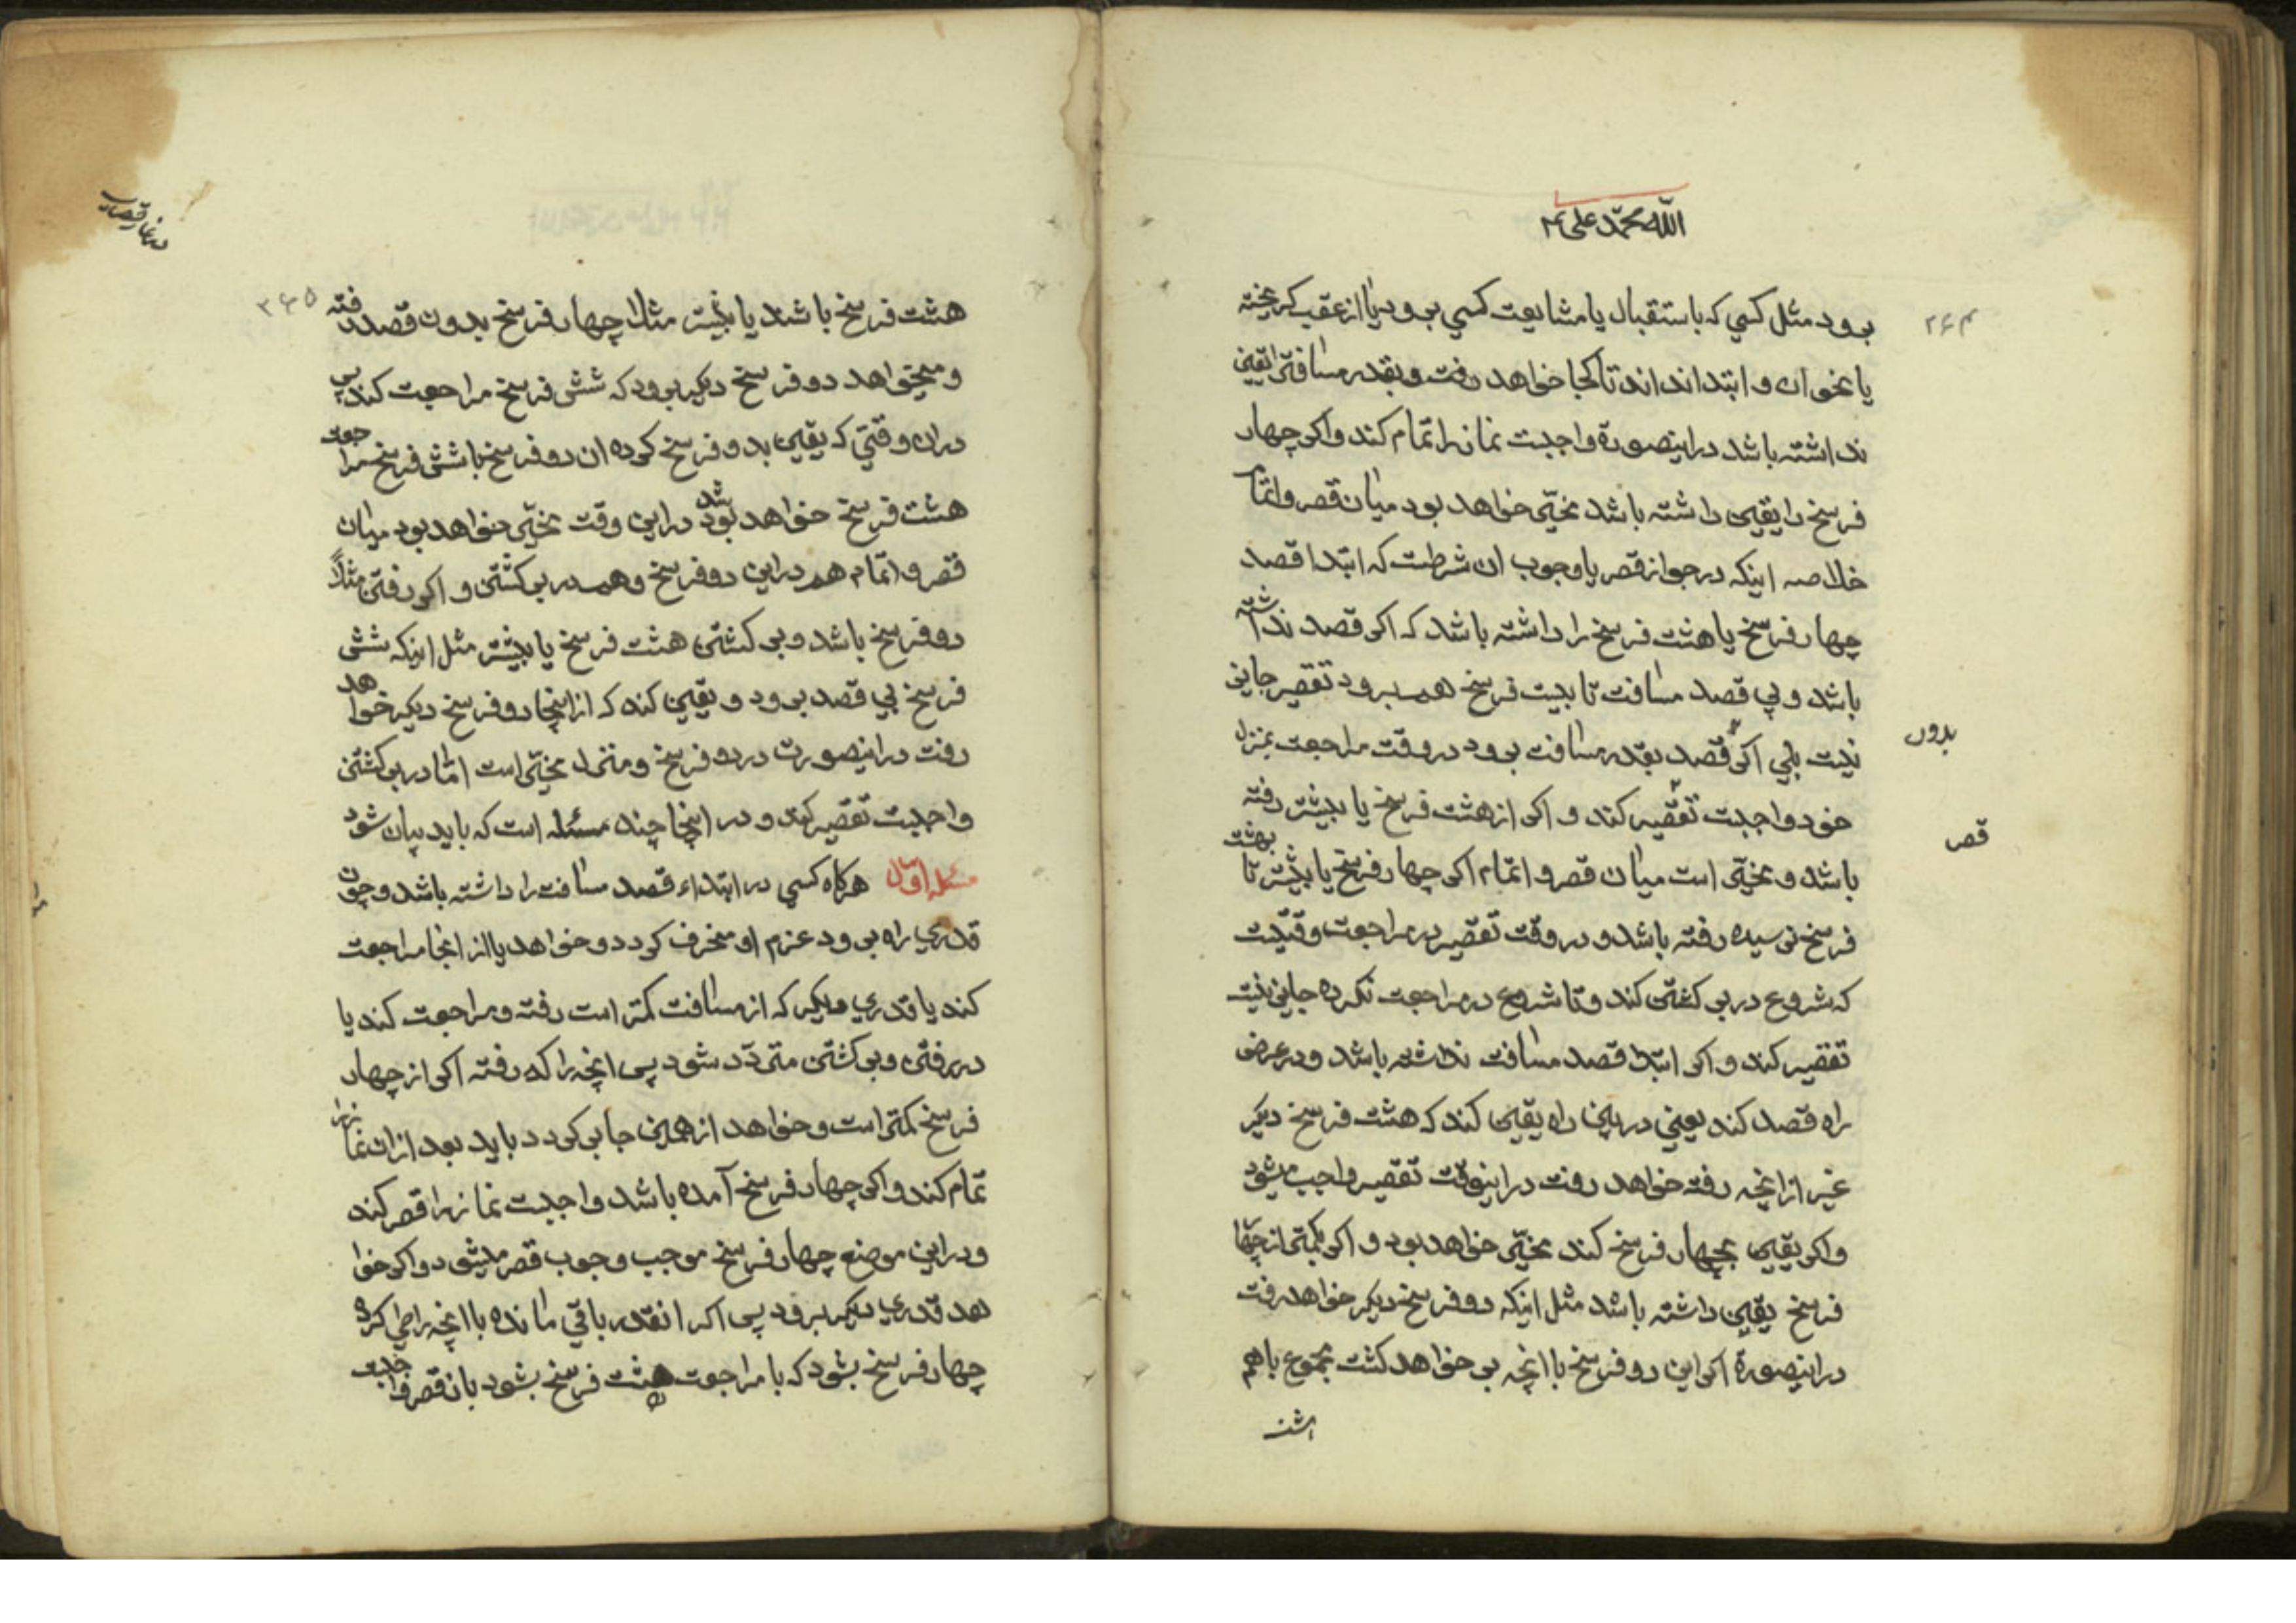 الله محمد علی
۲۶۴
برود مثل کسی که باستقبال یا مشایعت کسی برود یا از عقب کریخته
یا نحو ان و ابتدا نداند تا کجا خواهد رفت و بقدر مسافتی یقین
نداشته باشد دراینصورة واجبست نماز را تمام کند و اکر چهار
فرسخ را یقین داشته باشد مخیّر خواهد بود میان قصر و اتمام
خلاصه اینکه در جواز قصر یا وجوب ان شرطست که ابتدا قصد
چهار فرسخ یا هشت فرسخ را داشته باشد که اکر قصد نداشته
باشد و بی قصد مسافت تا بیست فرسخ هم برود تقصیر جایز
نیست بلی اکر قصد بقدر مسافت برود در وقت مراجعت بمنزل
بدون
خود واجبست تقصیر کند و اکر از هشت فرسخ یا بیشتر رفته
قصر
باشد و مخیّر است میان قصر و اتمام اکر چهار فرسخ یا بیشتر تا بهشت
فرسخ نرسیده رفته باشد و در وقت تقصیر در مراجعت وقتیست
که شروع در برکشتن کند و تا شروع در مراجعت نکرده جایز نیست
تقصیر کند و اکر ابتدا قصد مسافت نداشته باشد و در عرض
راه قصد کند یعنی در بین راه یقین کند که هشت فرسخ دیکر
غیر از انچه رفته خواهد رفت در اینوقت تقصیر واجب میشود
و اکر یقین بچهار فرسخ کند مخیّر خواهد بود و اکر بکمتر از چهار
فرسخ یقین داشته باشد مثل اینکه دو فرسخ دیکر خواهد رفت
دراینصورة اکر این دو فرسخ با انچه بر خواهد کشت مجموع باهم
هشت
در نماز قصر
۲۶۵
هشت فرسخ باشد یا بیشتر مثلا چهار فرسخ بدون قصد رفته
و میخواهد دو فرسخ دیکر برود که شش فرسخ مراجعت کند پس
در ان وقتی که یقین بدو فرسخ کرده ان دو فرسخ با شش فرسخ مراجعت
هشت فرسخ خواهد بود شد در این وقت مخیّر خواهد بود میان
قصر و اتمام هم در این دو فرسخ و هم در برکشتن و اکر رفتن مثلاً
دو فرسخ باشد و برکشتن هشت فرسخ یا بیشتر مثل اینکه شش
فرسخ بی قصد برود و یقین کند که از اینجا دو فرسخ دیکر خواهد
رفت دراینصورت در دو فرسخ و منزل مخیّر است امّا در برکشتن
واجبست تقصیر کند و در اینجا چند مسئله است که باید بیان شود
مسئله اول هرکاه کسی در ابتداء قصد مسافت را داشته باشد و چون
قدری راه برود عزم او منحرف کردد و خواهد یا از انجا مراجعت
کند یا قدری دیکر که از مسافت کمتر است رفته و مراجعت کند یا
در رفتن و برکشتن متردّد شود پس انچه را که رفته اکر از چهار
فرسخ کمتر است و خواهد از همین جا برکردد باید بعد از ان نماز را
تمام کند و اکر چهار فرسخ آمده باشد واجبست نماز را قصر کند
و در این موضع چهار فرسخ موجب وجوب قصر میشود و اکر خوا
هد قدری دیکر برود پس اکر انقدر باقی مانده با انچه را طی کرده
چهار فرسخ بشود که با مراجعت هشت فرسخ بشود باز قصر واجبست